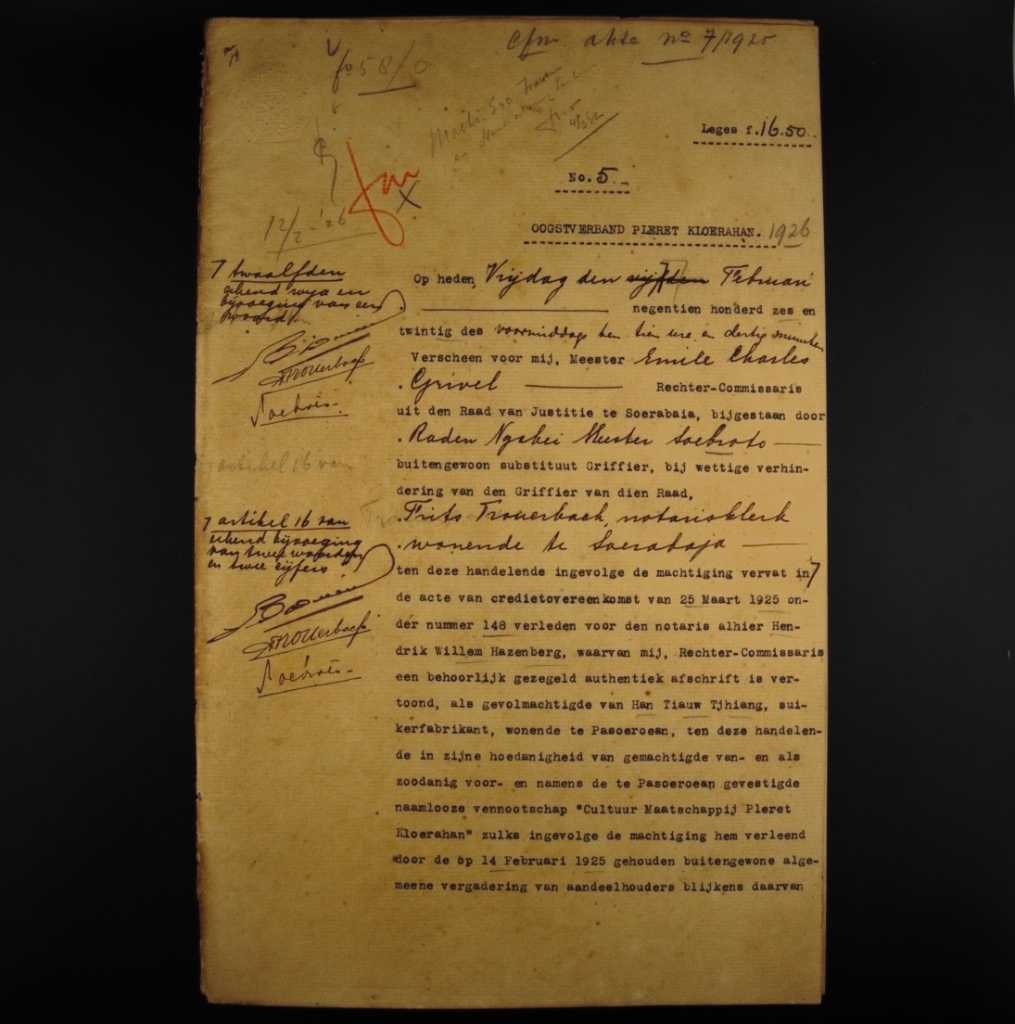 Cfm. akte no 7/1925
fo 58/0
Leges f.16.50.
No. 5.
12/2 - '26
OOGSTVERBAND PLERET KLOERAHAN. 1926
7 twaalfden
Op heden Vrijdag den vijfden Februari
negentien honderd zes en
twintig des voormiddags ten tien ure en dertig minuten
Verscheen voor mij, Meester Emile Charles
Grivel Rechter-Commissaris
uit den Raad van Justitie te Soerabaia, bijgestaan door
Raden Ngabei Meester Soebroto
buitengewoon substituut Griffier, bij wettige verhin-
dering van den Griffier van dien Raad,
Frits Trouerbach, notarisklerk
wonende te Soerabaja
artikel 16 van
7 artikel 16 van
erkend bijvoeging
van twee woorden
en twee cijfers.
Trouerbach
Soebroto
ten deze handelende ingevolge de machtiging vervat in 7
de acte van credietovereenkomst van 25 Maart 1925 on-
der nummer 148 verleden voor den notaris alhier Hen-
drik Willem Hazenberg, waarvan mij, Rechter-Commissaris
een behoorlijk gezegeld authentiek afschrift is ver-
toond, als gevolmachtigde van Han Tiauw Tjhiang, sui-
kerfabrikant, wonende te Pasoeroean, ten deze handelen-
de in zijne hoedanigheid van gemachtigde van- en als
zoodanig voor- en namens de te Pasoeroean gevestigde
naamlooze vennootschap "Cultuur Maatschappij Pleret
Kloerahan" zulks ingevolge de machtiging hem verleend
door de op 14 Februari 1925 gehouden buitengewone alge-
meene vergadering van aandeelhouders blijkens daarvan